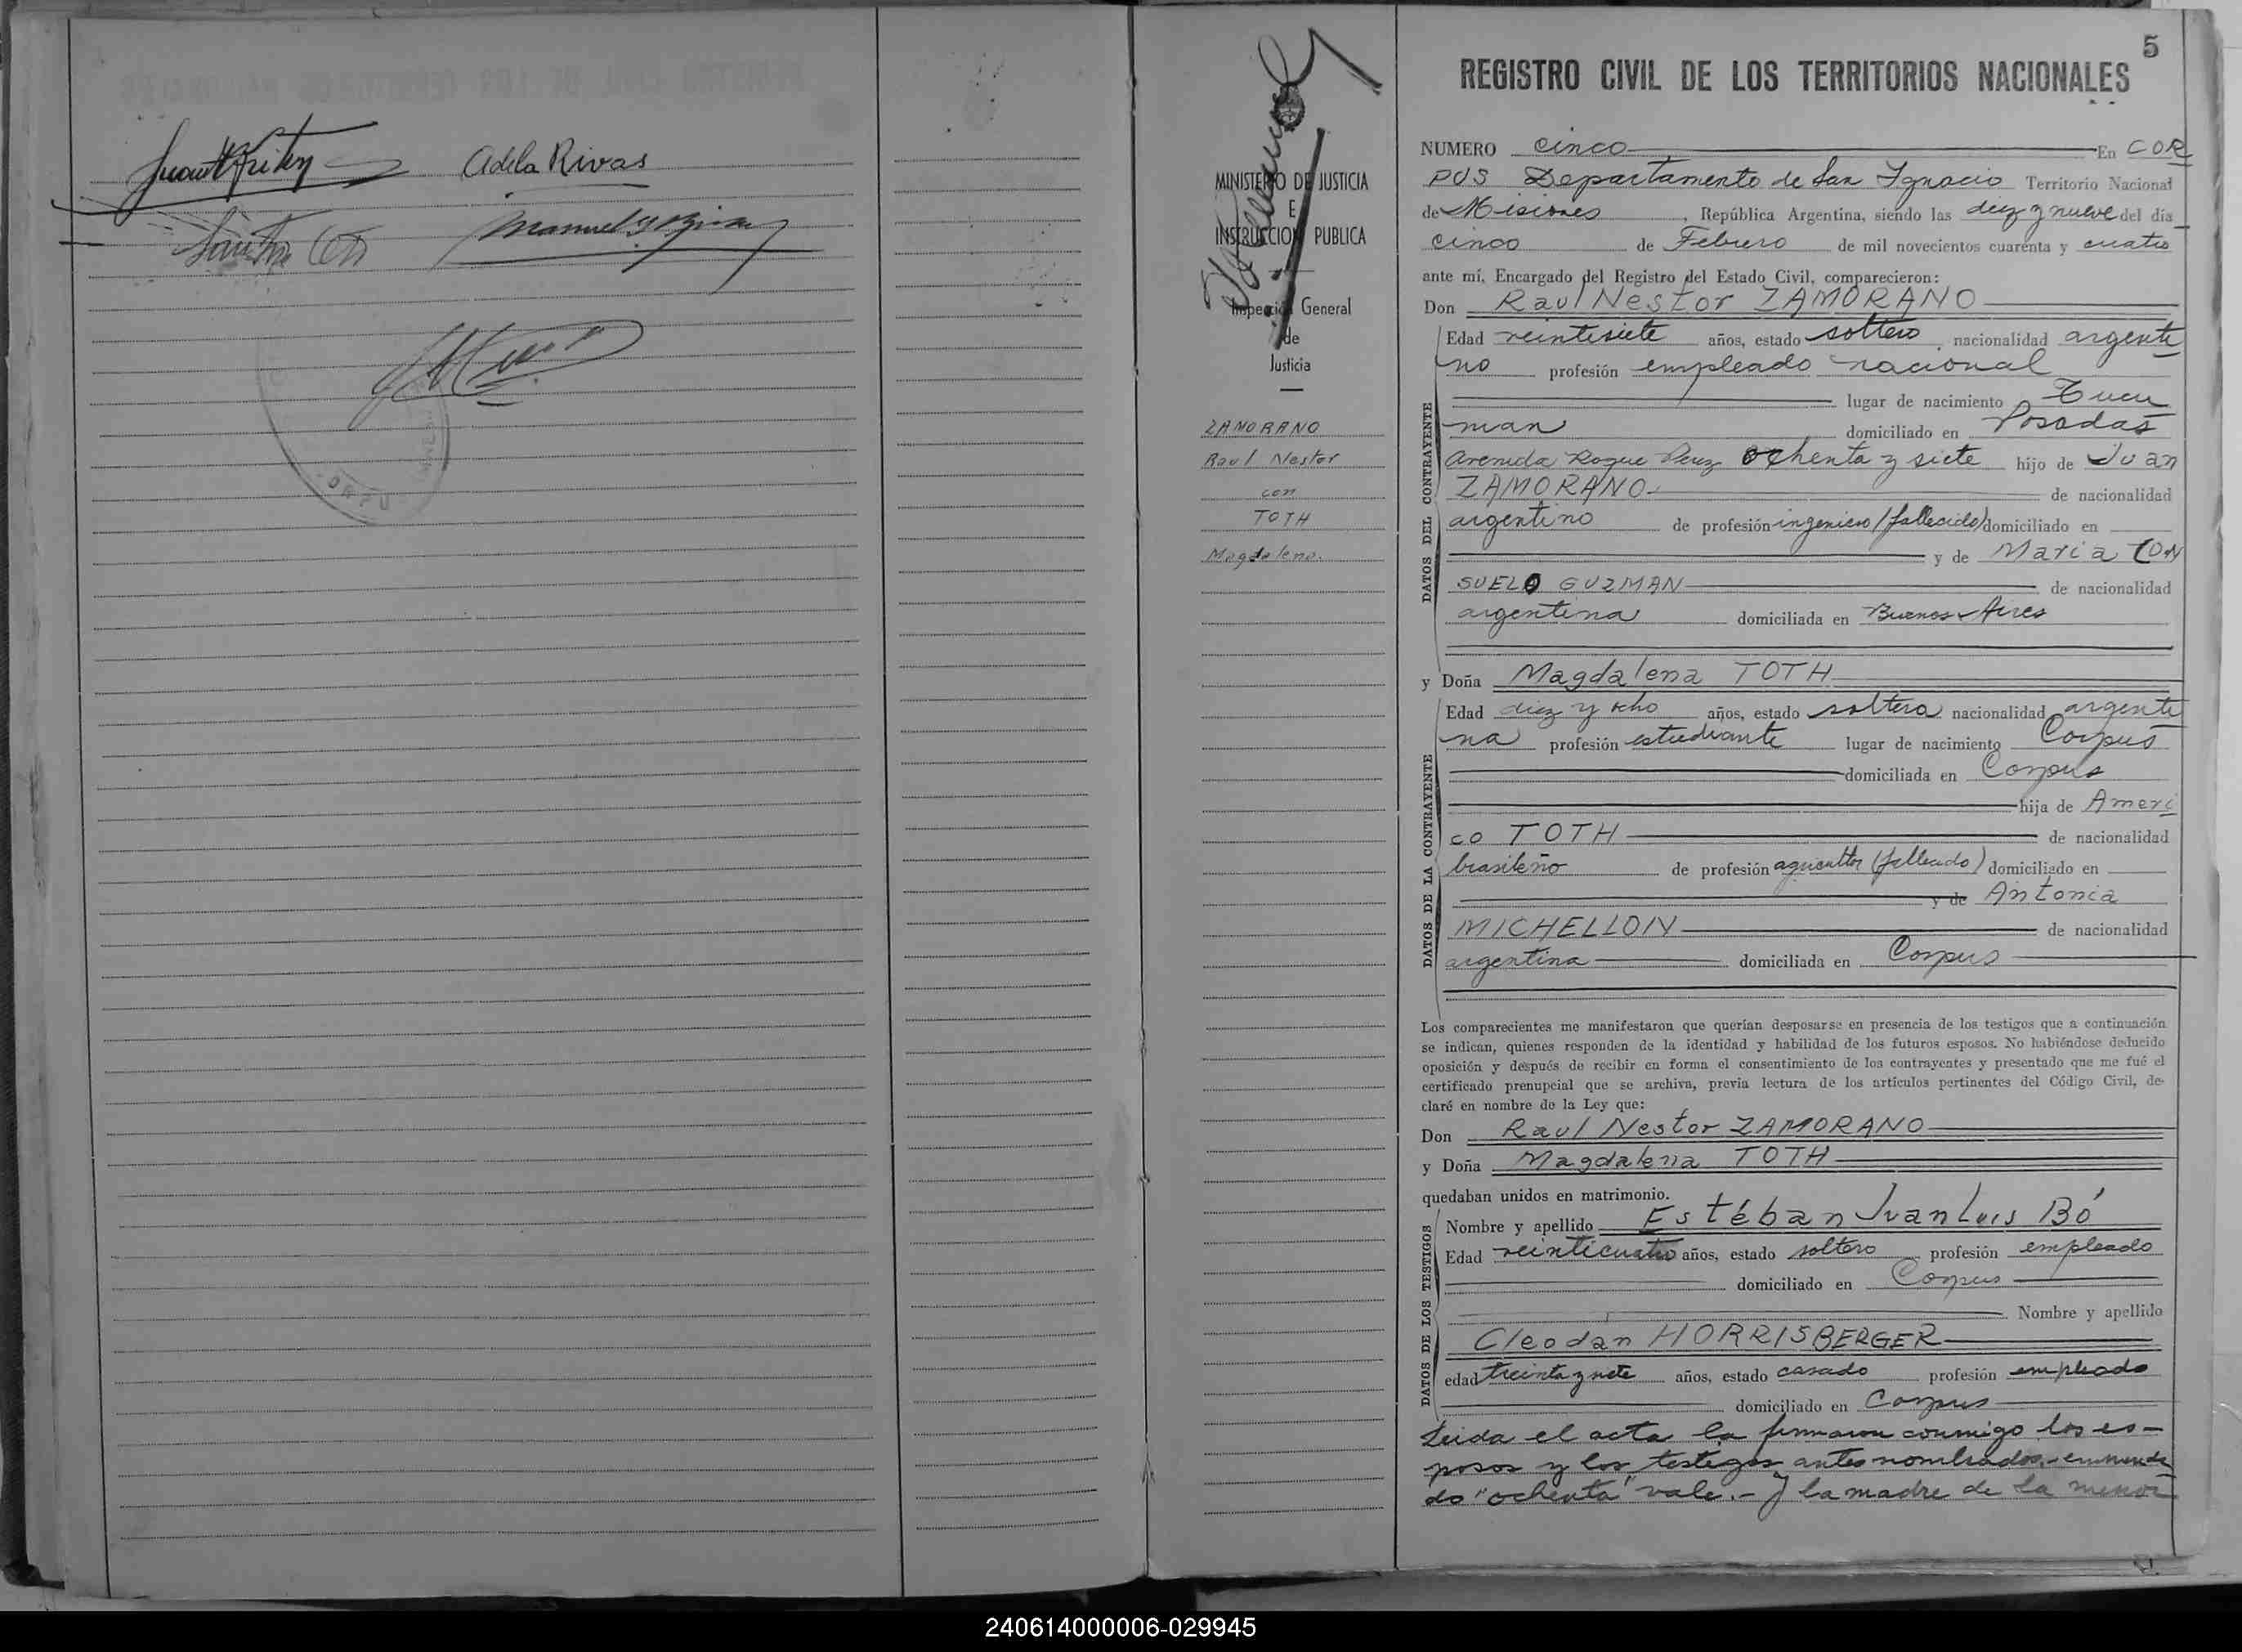 Adela Rivas
5
REGISTRO CIVIL DE LOS TERRITORIOS NACIONALES
MINISTERIO DE JUSTICIA
E
INSTRUCCION PUBLICA
Inspección General
de
Justicia
ZAMORANO
Raul Nestor
con
TOTH
Magdalena.
NUMERO cinco En COR
PUS Departamento de San Ignacio Territorio Nacional
de Misiones, República Argentina, siendo las diez y nueve del día
cinco de Febrero de mil novecientos cuarenta y cuatro
ante mí, Encargado del Registro del Estado Civil, comparecieron:
Don Raul Nestor ZAMORANO
DATOS DEL CONTRAYENTE
Edad veintisiete años, estado soltero nacionalidad argenti
no profesión empleado nacional
lugar de nacimiento Tucu
man domiciliado en Posadas
Avenida Roque Perez ochenta y siete hijo de Juan
ZAMORANO de nacionalidad
argentino de profesión ingeniero (fallecido) domiciliado en
y de Maria CON
SUELO GUZMAN de nacionalidad
argentina domiciliada en Buenos Aires
y Doña Magdalena TOTH
DATOS DE LA CONTRAYENTE
Edad diez y ocho años, estado soltera nacionalidad argenti
na profesión estudiante lugar de nacimiento Corpus
domiciliada en Corpus
hija de Ameri
co TOTH de nacionalidad
brasileño de profesión agricultor (fallecido) domiciliado en
y de Antonia
MICHELLON de nacionalidad
argentina domiciliada en Corpus
Los comparecientes me manifestaron que querían desposarse en presencia de los testigos que a continuación
se indican, quienes responden de la identidad y habilidad de los futuros esposos. No habiéndose deducido
oposición y después de recibir en forma el consentimiento de los contrayentes y presentado que me fué el
certificado prenupcial que se archiva, previa lectura de los artículos pertinentes del Código Civil, de-
claré en nombre de la Ley que:
Don Raul Nestor ZAMORANO
y Doña Magdalena TOTH
quedaban unidos en matrimonio.
DATOS DE LOS TESTIGOS
Nombre y apellido Estéban Juan Luis Bó
Edad veinticuatro años, estado soltero profesión empleado
domiciliado en Corpus
Nombre y apellido
Cleodan HORRISBERGER
edad treinta y siete años, estado casado profesión empleado
domiciliado en Corpus
Leida el acta la firmaron conmigo los es-
posos y los testigos antes nombrados.- enmenda
do "ochenta" vale.- Y la madre de la menor
240614000006-029945